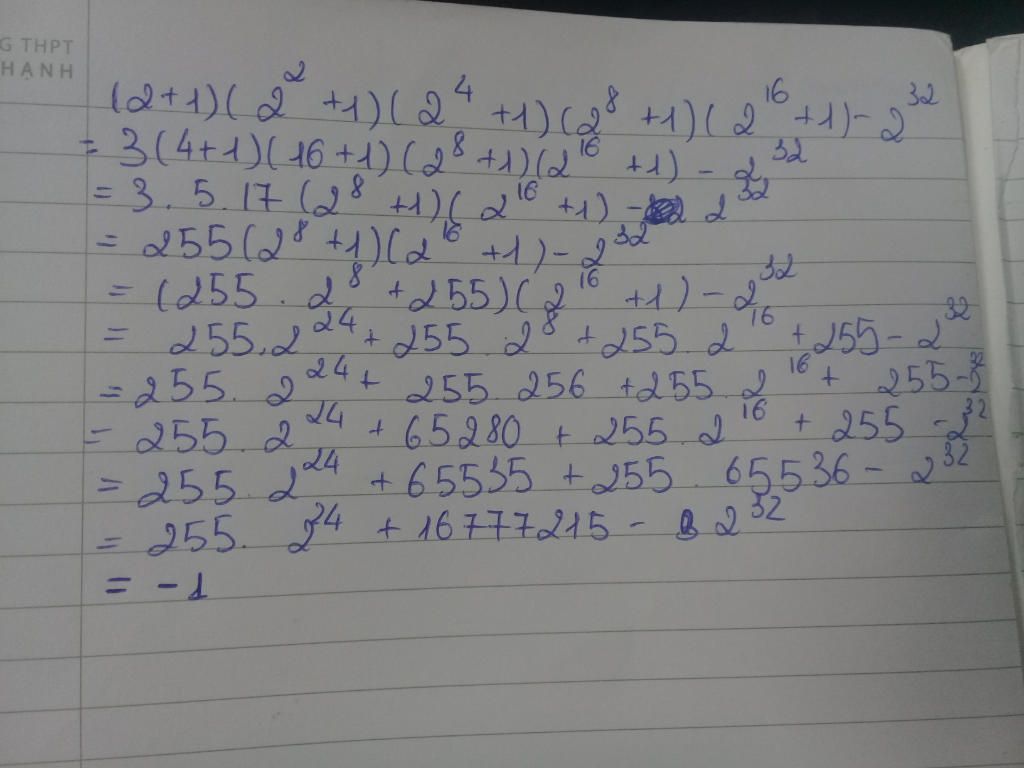 G THPT
HẠNH
(2+1)(2² +1)(2⁴ +1)(2⁸ +1)(2¹⁶ +1) - 2³²
= 3(4+1)(16+1)(2⁸ +1)(2¹⁶ +1) - 2³²
= 3. 5. 17 (2⁸ +1)(2¹⁶ +1) - 2³²
= 255(2⁸ +1)(2¹⁶ +1) - 2³²
= (255 . 2⁸ +255)(2¹⁶ +1) - 2³²
= 255.2²⁴ + 255 . 2⁸ +255. 2¹⁶ +255 - 2³²
= 255. 2²⁴ + 255. 256 +255. 2¹⁶ + 255 - 2³²
= 255. 2²⁴ + 65280 + 255. 2¹⁶ + 255 - 2³²
= 255. 2²⁴ + 65535 + 255. 65536 - 2³²
= 255. 2²⁴ + 16777215 - 2³²
= -1